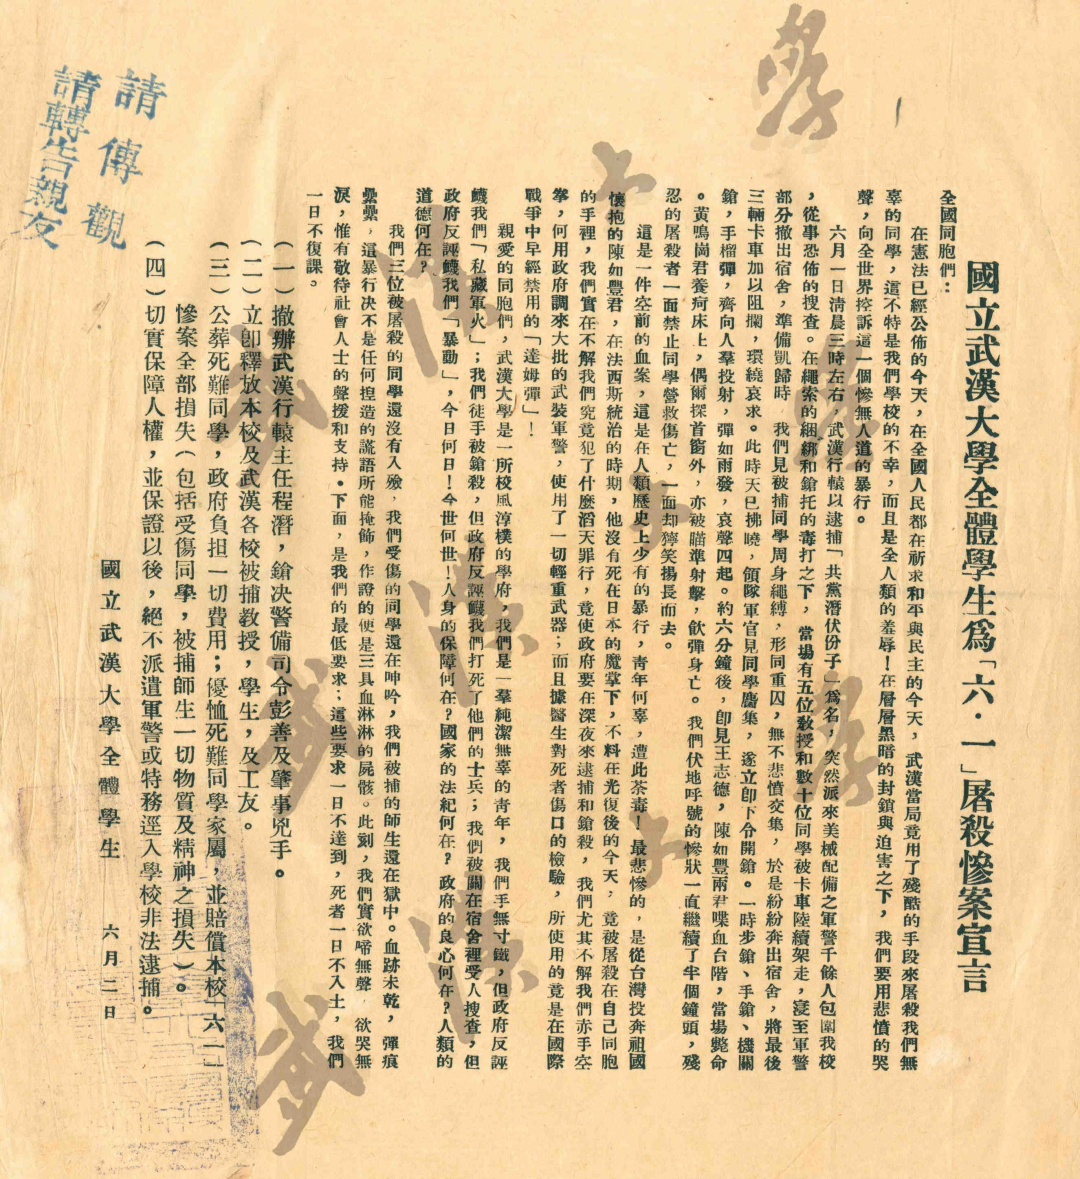 國立武漢大學全體學生爲「六·一」屠殺慘案宣言
全國同胞們：
在憲法已經公佈的今天，在全國人民都在祈求和平與民主的今天，武漢當局竟用了殘酷的手段來屠殺我們無
辜的同學，這不特是我們學校的不幸，而且是全人類的羞辱！在層層黑暗的封鎖與迫害之下，我們要用悲憤的哭
聲，向全世界控訴這一個慘無人道的暴行。
六月一日清晨三時左右，武漢行轅以逮捕「共黨潛伏份子」爲名，突然派來美械配備之軍警千餘人包圍我校
，從事恐佈的搜查。在繩索的綑綁和鎗托的毒打之下，當場有五位敎授和數十位同學被卡車陸續架走，寖至軍警
部分撤出宿舍，準備凱歸時，我們見被捕同學周身繩縛，形同重囚，無不悲憤交集，於是紛紛奔出宿舍，將最後
三輛卡車加以阻攔，環繞哀求。此時天已拂曉，領隊軍官見同學麕集，遂立卽下令開鎗。一時步鎗、手鎗、機關
鎗，手榴彈，齊向人羣投射，彈如雨發，哀聲四起。約六分鐘後，卽見王志德，陳如豐兩君喋血台階，當場斃命
。黃鳴崗君養疴床上，偶爾探首窗外，亦被瞄準射擊，飲彈身亡。我們伏地呼號的慘狀一直繼續了半個鐘頭，殘
忍的屠殺者一面禁止同學營救傷亡，一面却獰笑揚長而去。
這是一件空前的血案，這是在人類歷史上少有的暴行，靑年何辜，遭此荼毒！最悲慘的，是從台灣投奔祖國
懷抱的陳如豐君，在法西斯統治的時期，他沒有死在日本的魔掌下，不料在光復後的今天，竟被屠殺在自己同胞
的手裡，我們實在不解我們究竟犯了什麼滔天罪行，竟使政府要在深夜來逮捕和鎗殺，我們尤其不解我們赤手空
拳，何用政府調來大批的武装軍警，使用了一切輕重武器；而且據醫生對死者傷口的檢驗，所使用的竟是在國際
戰爭中早經禁用的「達姆彈」！
親愛的同胞們，武漢大學是一所校風淳樸的學府，我們是一羣純潔無辜的靑年，我們手無寸鐵，但政府反誣
衊我們「私藏軍火」；我們徒手被鎗殺，但政府反誣衊我們打死了他們的士兵；我們被關在宿舍裡受人搜查，但
政府反誣衊我們「暴動」，今日何日！今世何世！人身的保障何在？國家的法紀何在？政府的良心何在？人類的
道德何在？
我們三位被屠殺的同學還沒有入殮，我們受傷的同學還在呻吟，我們被捕的師生還在獄中。血跡未乾，彈痕
纍纍，這暴行決不是任何揑造的謊語所能掩飾，作證的便是三具血淋淋的屍骸。此刻，我們實欲啼無聲，欲哭無
淚，惟有敬待社會人士的聲援和支持。下面，是我們的最低要求；這些要求一日不達到，死者一日不入土，我們
一日不復課。
（一）撤辦武漢行轅主任程潛，鎗决警備司令彭善及肇事兇手。
（二）立卽釋放本校及武漢各校被捕敎授，學生，及工友。
（三）公葬死難同學，政府負担一切費用；優恤死難同學家屬，並賠償本校「六一」
慘案全部損失（包括受傷同學，被捕師生一切物質及精神之損失）。
（四）切實保障人權，並保證以後，絕不派遣軍警或特務逕入學校非法逮捕。
國立武漢大學全體學生　六月二日
請傳觀
請轉告親友
武漢大學
武漢大學
武漢大學